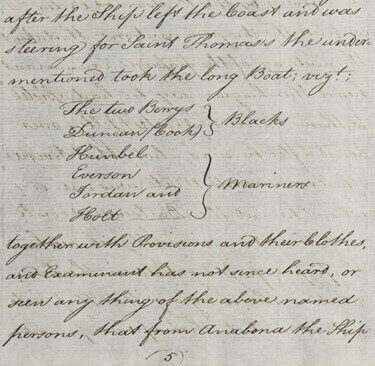 after the Ship left the Coast and was
steering for Saint Thomas's the under-
mentioned took the long Boat; vizt;
The two Berrys
Duncan (Cook) } Blacks
Hunbel
Everson
Jordan and } Mariners
Holt
together with Provisions and their Clothes,
and Examinant has not since heard, or
seen any thing of the above named
persons, that from Anabona the Ship
(5)